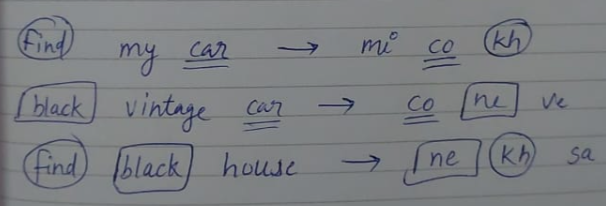 find my car → mi co kh
black vintage car → co ne ve
find black house → ne kh sa